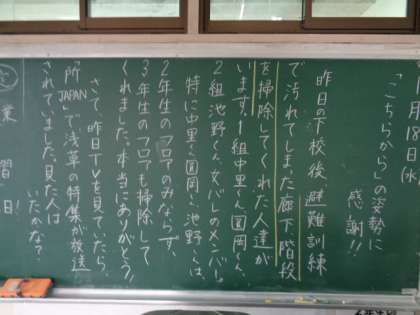 1月10日(水)
「こちらから」の姿勢に
感謝!!
昨日の下校後、避難訓練
で汚れてしまった廊下階段
を掃除してくれた人達が
います。1組中里くん、圓岡くん、
2組池野くん、女バレのメンバー。
特に中里くん、圓岡くん、池野くんは、
2年生のフロアのみならず、
3年生のフロアも掃除して
くれました。本当にありがとう!
さて、昨日TVを見ていたら、
「所JAPAN」で浅草の特集が放送
されていました。見た人は
いたかな?
業
習
日!